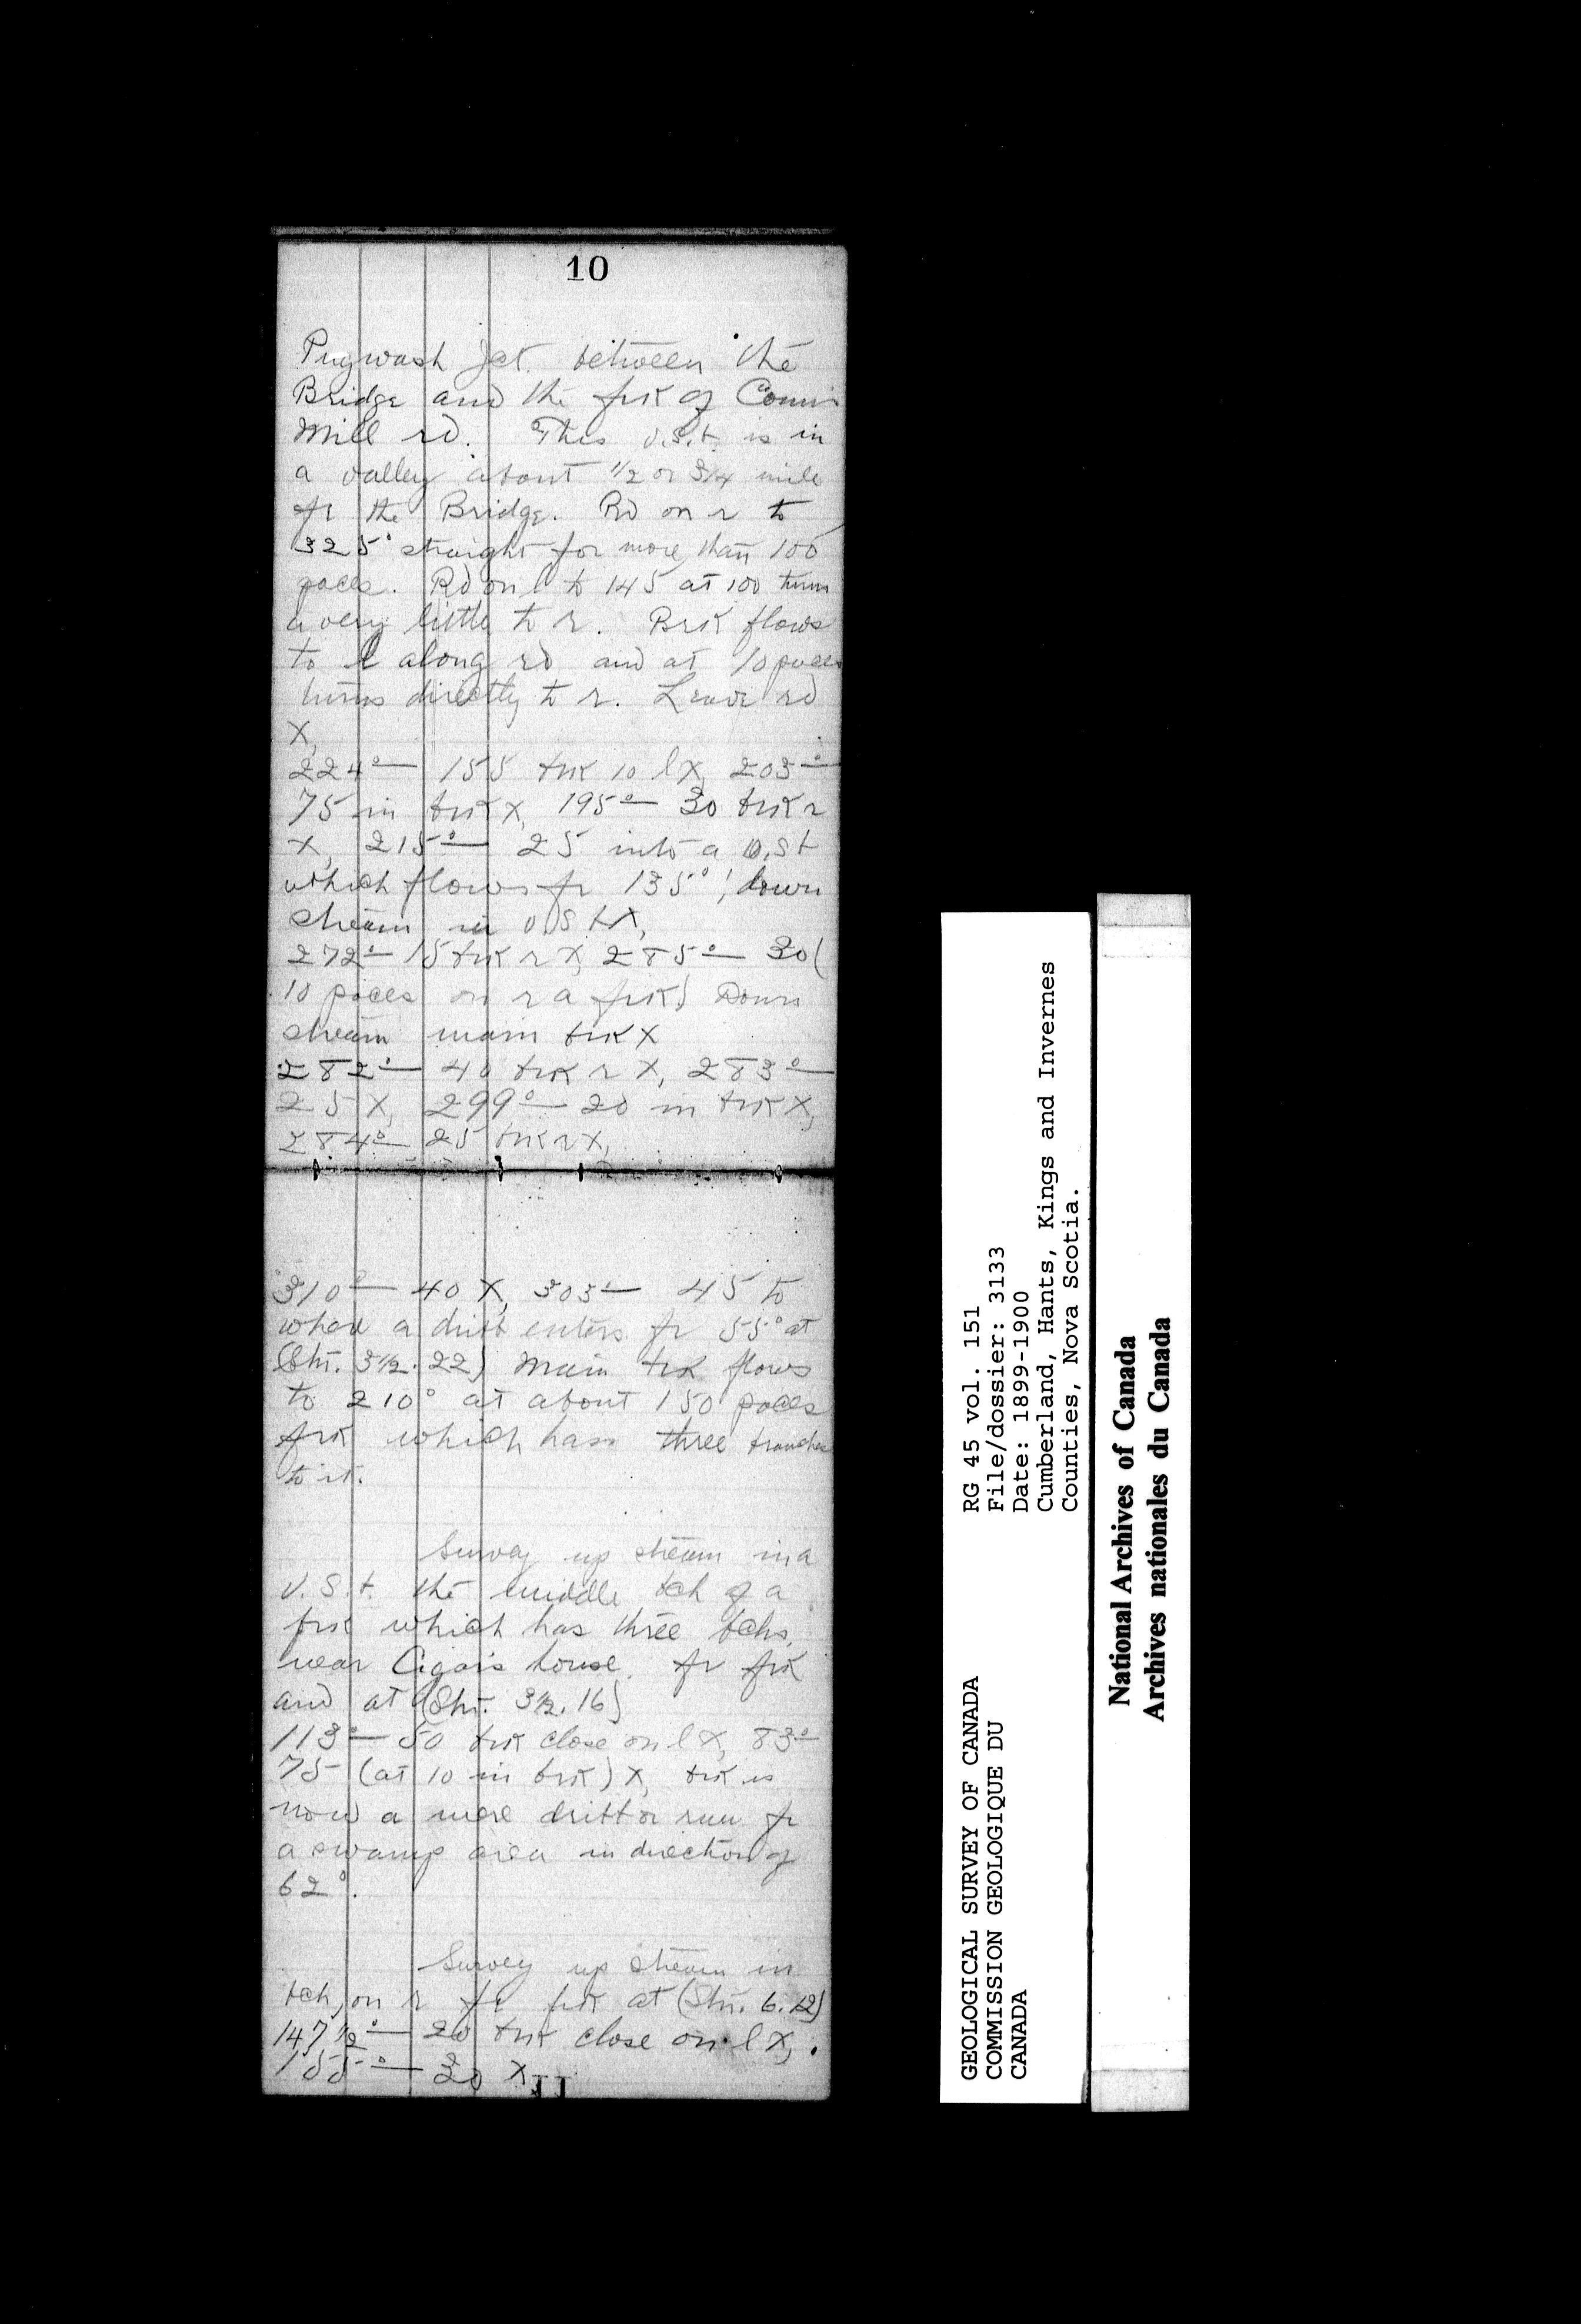 10
Pugwash Jct. between the
Bridge and the frk of
Mill rd. This v.s.t. is in
a valley about 1/2 or 3/4 mile
fr the Bridge. Rd on r to
325° straight for more than 100
paces. Rd on l to 145 at 100 turns
a very little to r. Brk flows
to l along rd and at 10 paces
turns directly to r. Leave rd
X,
224°— 155 brk 10 l X, 203°—
75 in brk X, 195°— 30 brk r
X, 215°— 25 into a v.s.t
which flows fr 135°, down
stream in v.s.t X,
272°— 15 brk r X, 285°— 30 (
10 paces on r a frk) Down
stream main brk X
282°— 40 brk r X, 283°—
25 X, 299°— 20 in brk X,
284°— 25 brk r X,
310°— 40 X, 303°— 45 to
where a enters fr 55° at
3 1/2. 22) Main brk flows
to 210° at about 150 paces
frk which has three branches
to it.
Survey up stream in a
V.S.t. the middle bch of a
frk which has three bchs,
near house. fr frk
and at 3 1/2. 16)
113°— 50 brk close on l X, 83°—
75 (at 10 in brk) X, brk is
now a mere or run fr
a swamp area in direction of
62°.
Survey up stream in
bch, on r fr frk at 6. 12)
147 1/2°— 20 brk close on l X,
155°— 30 X,
GEOLOGICAL SURVEY OF CANADA
COMMISSION GEOLOGIQUE DU
CANADA
RG 45 vol. 151
File/dossier: 3133
Date: 1899-1900
Cumberland, Hants, Kings and Invernes
Counties, Nova Scotia.
National Archives of Canada
Archives nationales du Canada